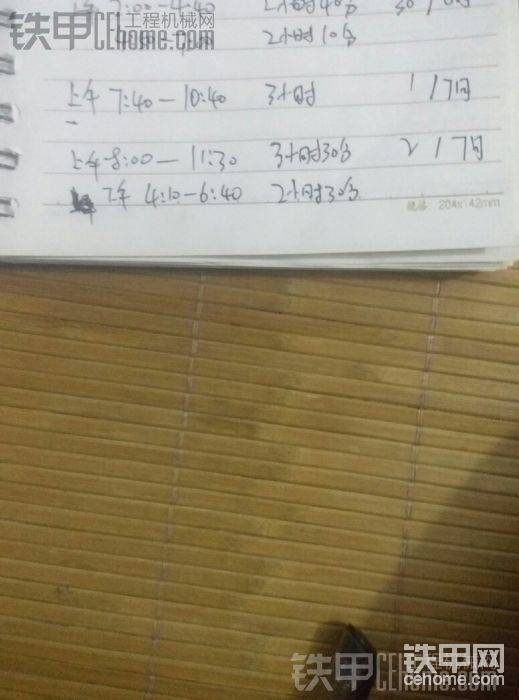 铁甲 工程机械网
CEhome.com
2小时10分
上午 7:40—10:40 3小时 1/7月
上午 8:00—11:30 3小时30分 2/7月
下午 4:10—6:40 2小时30分
规格 204x142mm
铁甲 工程机械网
CEhome.com
铁甲网
cehome.com